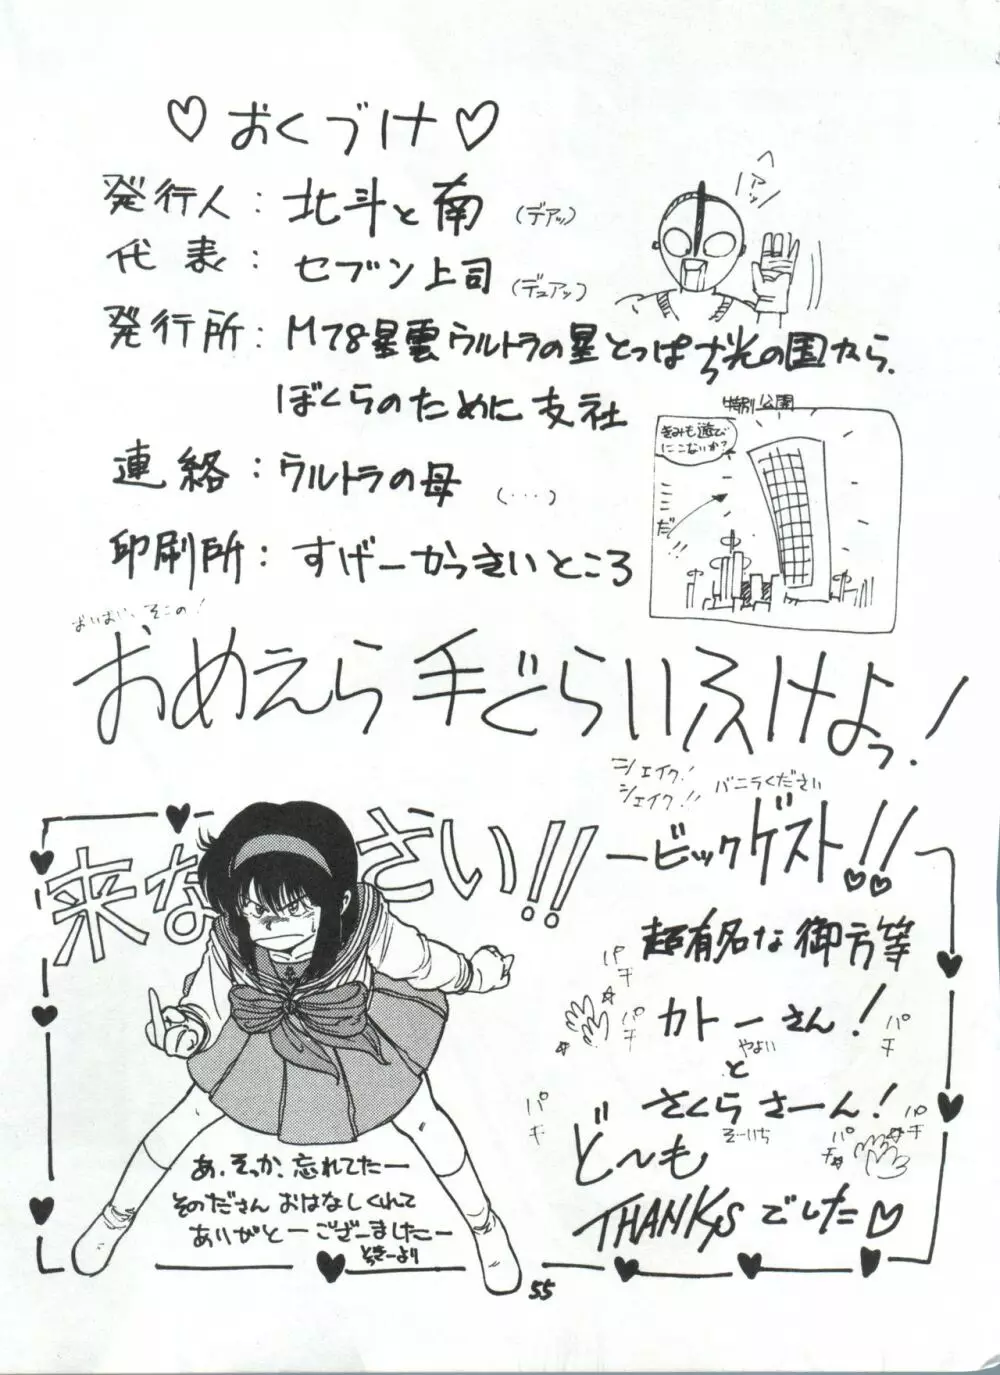 ♡おくづけ♡
発行人：北斗と南（デアッ）
代表：セブン上司（デュアッ）
発行所：M78星雲ウルトラの星とっぱち光の国から、
ぼくらのために支社
連絡：ウルトラの母（・・・）
印刷所：すげーかっきいところ
特別公園
きみも遊び
にこないか？
ここだ!!
おいおい、そこの！
おめえら手ぐらいふけよっ！
シェイク！
シェイク!!
バニラください
来なさい!!
ービックゲスト!!
超有名な御方等
パチ
パチ
カトーさん！
やよい
パチ
と
さくらさーん！
そーいち
パチ
パチ
パチ
ど〜も
THANKSでした♡
あ、そっか、忘れてたー
そのださんおはなしくれて
ありがとーございましたー
とらきーより
55